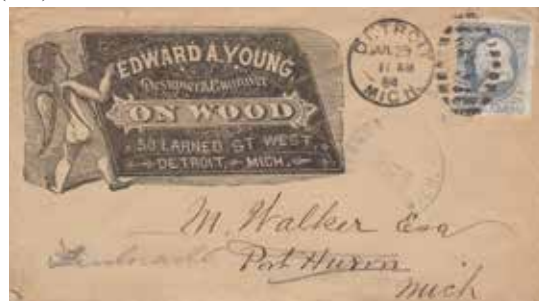 EDWARD A. YOUNG,
Designer & Engraver
ON WOOD
50 LARNED ST WEST,
DETROIT, MICH.
DETROIT
JAN 29
11 AM
MICH.
M. Walker Esq
Port Huron
Mich